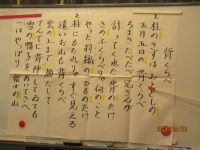 背くらべ
1.柱のきずはおととしの
五月五日の背くらべ
ちまきたべたべ兄さんが
計ってくれた背のたけ
きのうくらべりゃ何のこと
やっと羽織のひものたけ
2.柱にもたれりゃすぐ見える
遠いお山も背くらべ
雲の上まで顔だして
てんでに背伸していても
雪の帽子をぬいでさえ
一はやっぱり富士の山